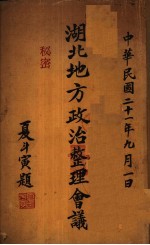 中華民國二十一年九月一日
湖北地方政治整理會議
秘密
夏斗寅題